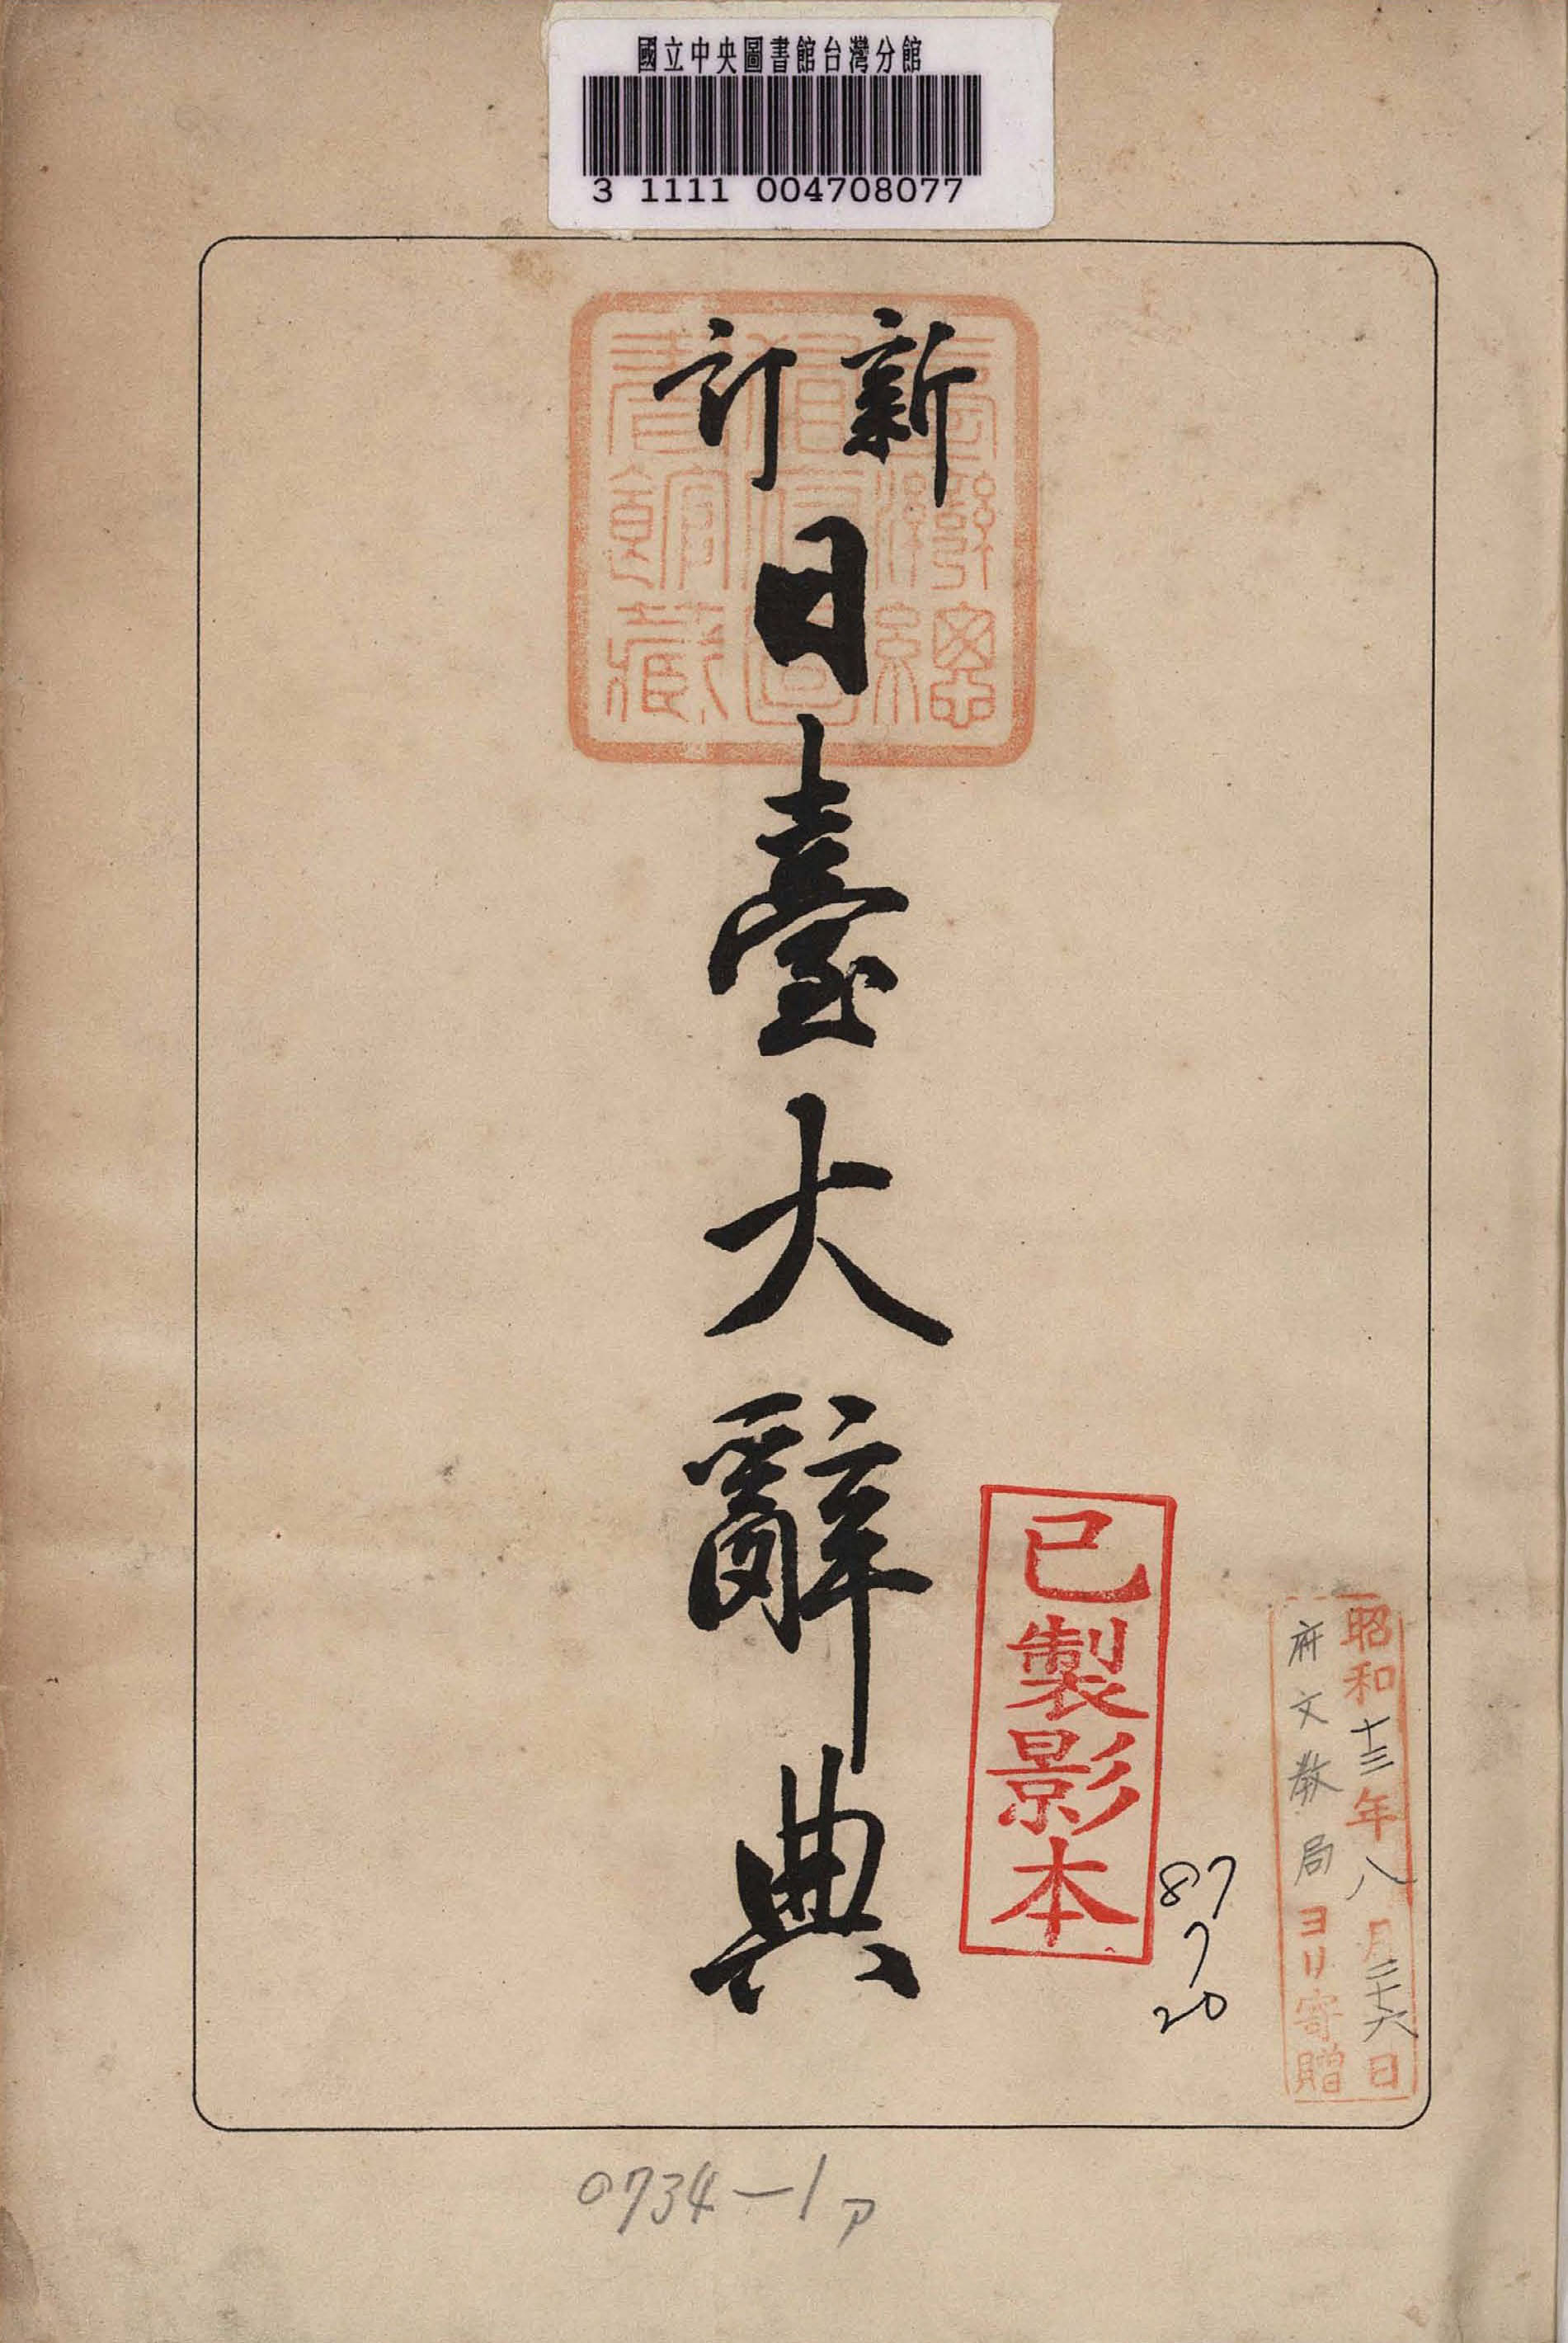 國立中央圖書館台灣分館
3 1111 004708077
新訂
日臺大辭典
臺灣總
督府圖
書館藏
已製影本
87
7
20
昭和十三年八月二十六日
府文教局ヨリ寄贈
0734-1ア